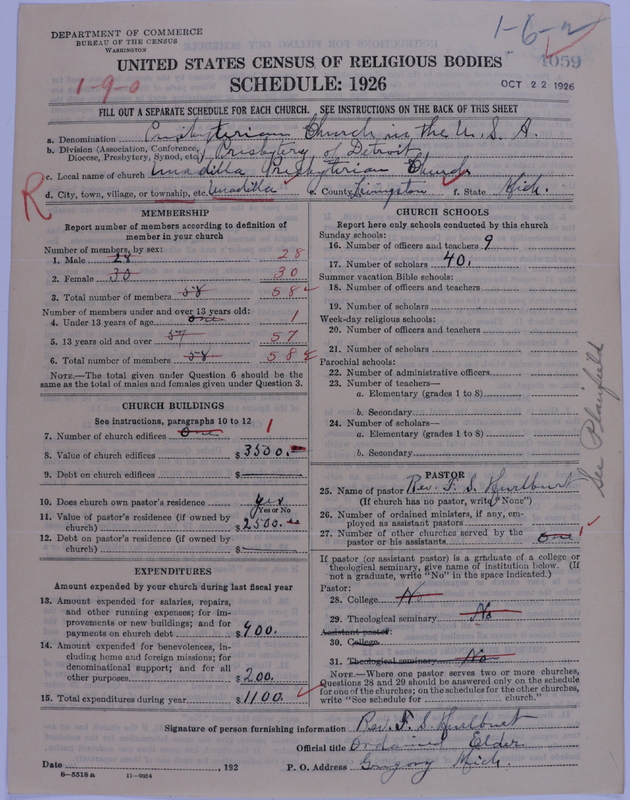 DEPARTMENT OF COMMERCE
BUREAU OF THE CENSUS
WASHINGTON
1-6-2
4059
UNITED STATES CENSUS OF RELIGIOUS BODIES
1-9-0
SCHEDULE: 1926
OCT 22 1926
FILL OUT A SEPARATE SCHEDULE FOR EACH CHURCH. SEE INSTRUCTIONS ON THE BACK OF THIS SHEET
a. Denomination Presbyterian Church in the U. S. A.
b. Division (Association, Conference, Diocese, Presbytery, Synod, etc.) Presbytery of Detroit
c. Local name of church Unadilla Presbyterian Church
R
d. City, town, village, or township, etc. Unadilla e. County Livingston f. State Mich.
MEMBERSHIP
Report number of members according to definition of
member in your church
Number of members, by sex:
1. Male 28 28
2. Female 30 30
3. Total number of members 58 58
Number of members under and over 13 years old:
4. Under 13 years of age one 1
5. 13 years old and over 57 57
6. Total number of members 58 58
NOTE.—The total given under Question 6 should be the
same as the total of males and females given under Question 3.
CHURCH BUILDINGS
See instructions, paragraphs 10 to 12
7. Number of church edifices One 1
8. Value of church edifices $3500.
9. Debt on church edifices $
10. Does church own pastor's residence yes
Yes or No
11. Value of pastor's residence (if owned by
church) $2500.
12. Debt on pastor's residence (if owned by
church) $
EXPENDITURES
Amount expended by your church during last fiscal year
13. Amount expended for salaries, repairs,
and other running expenses; for im-
provements or new buildings; and for
payments on church debt $900.
14. Amount expended for benevolences, in-
cluding home and foreign missions; for
denominational support; and for all
other purposes $200.
15. Total expenditures during year $1100.
CHURCH SCHOOLS
Report here only schools conducted by this church
Sunday schools:
16. Number of officers and teachers 9
17. Number of scholars 40.
Summer vacation Bible schools:
18. Number of officers and teachers
19. Number of scholars
Week-day religious schools:
20. Number of officers and teachers
21. Number of scholars
Parochial schools:
22. Number of administrative officers
23. Number of teachers—
a. Elementary (grades 1 to 8)
b. Secondary
24. Number of scholars—
a. Elementary (grades 1 to 8)
b. Secondary
See Plainfield
PASTOR
25. Name of pastor Rev. F. S. Hurlburt
(If church has no pastor, write "None")
26. Number of ordained ministers, if any, em-
ployed as assistant pastors
27. Number of other churches served by the
pastor or his assistants one 1
If pastor (or assistant pastor) is a graduate of a college or
theological seminary, give name of institution below. (If
not a graduate, write "No" in the space indicated.)
Pastor:
28. College No
29. Theological seminary No
Assistant pastor:
30. College
31. Theological seminary No
NOTE.—Where one pastor serves two or more churches,
Questions 28 and 29 should be answered only on the schedule
for one of the churches; on the schedules for the other churches,
write "See schedule for church."
Signature of person furnishing information Rev. F. S. Hurlburt
Official title Ordained Elder
Date , 192 P. O. Address Gregory Mich.
8—5518 a 11—9354